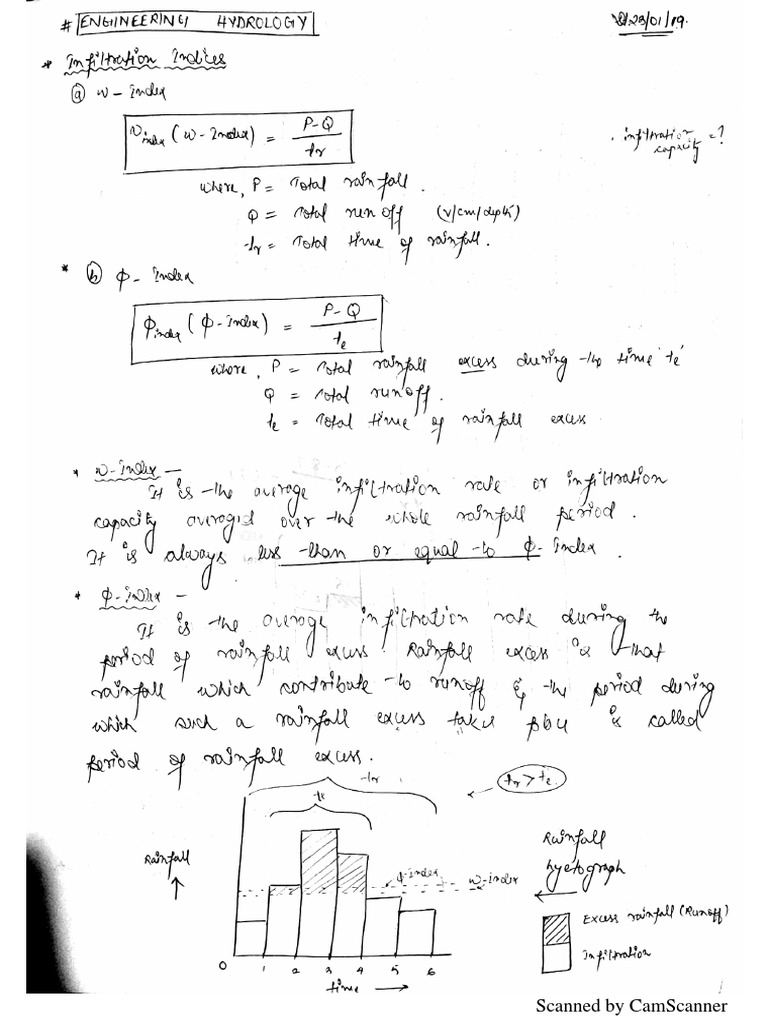 # ENGINEERING HYDROLOGY
23/01/19.
* Infiltration Indices
(a) W - Index
Windex (W - Index) = P-Q / tr
. infiltration capacity = ?
where, P = Total rainfall.
Q = Total run off (v/cm/depth)
tr = Total time of rainfall.
* (b) ϕ - Index
ϕindex (ϕ - Index) = P-Q / te
where, P = Total rainfall excess during the time 'te'
Q = Total runoff.
te = Total time of rainfall excess
* W-Index -
It is the average infiltration rate or infiltration
capacity averaged over the whole rainfall period.
It is always less than or equal to ϕ-Index.
* ϕ-Index -
It is the average infiltration rate during the
period of rainfall excess. Rainfall excess is that
rainfall which contribute to runoff & the period during
which such a rainfall excess takes place is called
period of rainfall excess.
tr
te
tr > te.
Rainfall
ϕ-index
W-index
Rainfall
hyetograph
Excess rainfall (Runoff)
Infiltration
0 1 2 3 4 5 6
time
Scanned by CamScanner